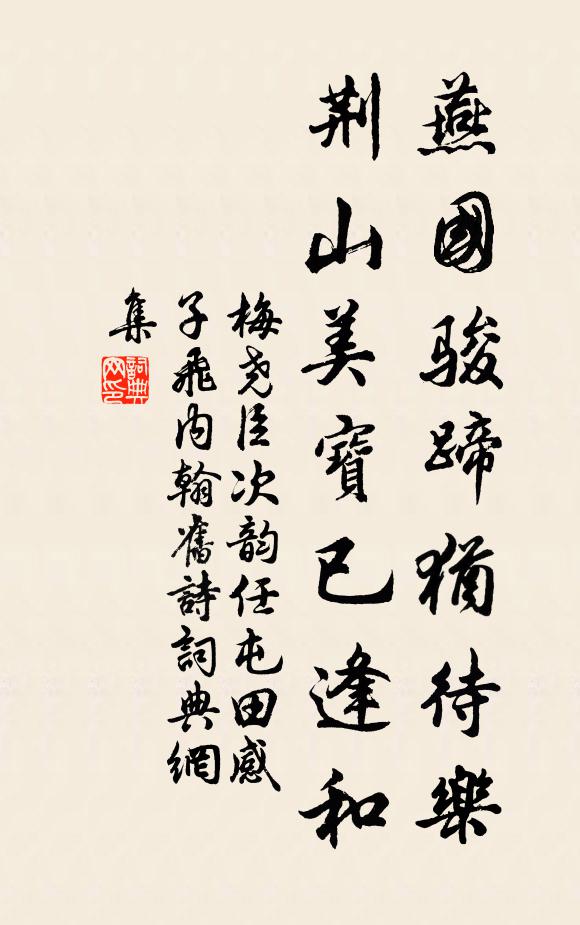 燕國駿蹄猶待樂
荆山美寶已逢和
梅堯臣次韵任屯田感
子飛内翰舊詩詞典網
集
詞典网印